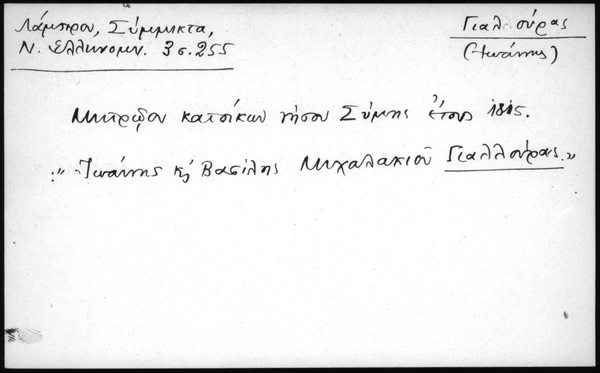 Λάμπρου, Σύμμικτα,
Ν. Ελληνομν. 3 σ. 255
Γιαλούρας
(Ἰωάννης)
Μητρῷον κατοίκων νήσου Σύμης ἔτους 1815.
:" Ἰωάννης κ Βασίλης Μιχαλακιοῦ Γιαλλούρας."